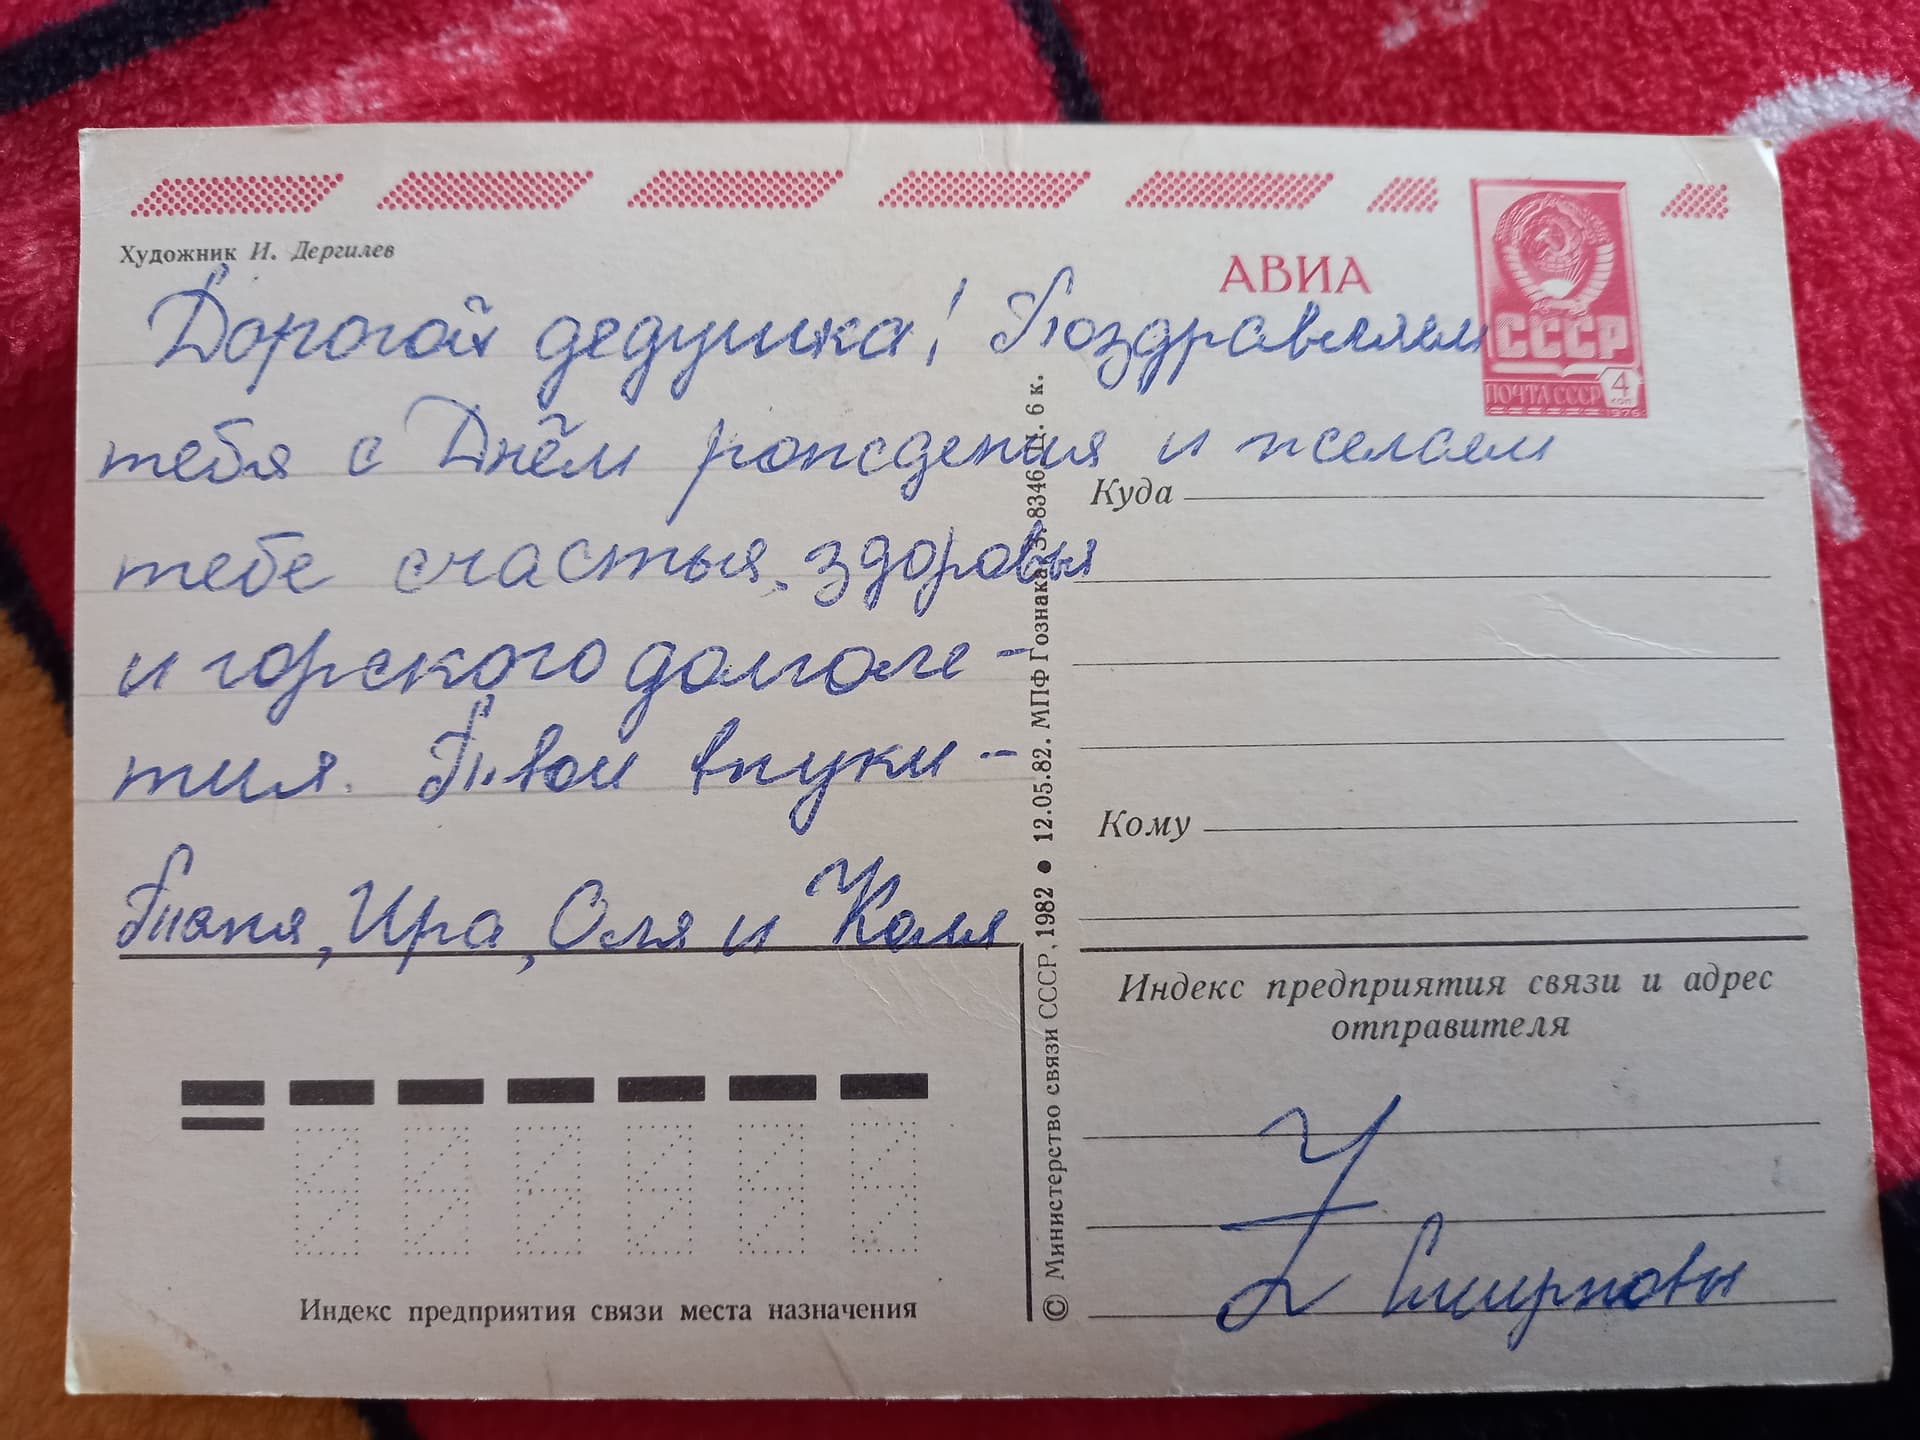 Художник И. Дергилев
АВИА
СССР
ПОЧТА СССР 4 коп
1976
Дорогой дедушка! Поздравляем
тебя с Днём рождения и желаем
тебе счастья, здоровья
и горского долголе-
тия. Твои внуки -
Таня, Ира, Оля и Коля
Куда
Кому
© Министерство связи СССР, 1982 ● 12.05.82. МПФ Гознака. З. 8346 Ц. 6 к.
Индекс предприятия связи и адрес
отправителя
Смирновы
Индекс предприятия связи места назначения